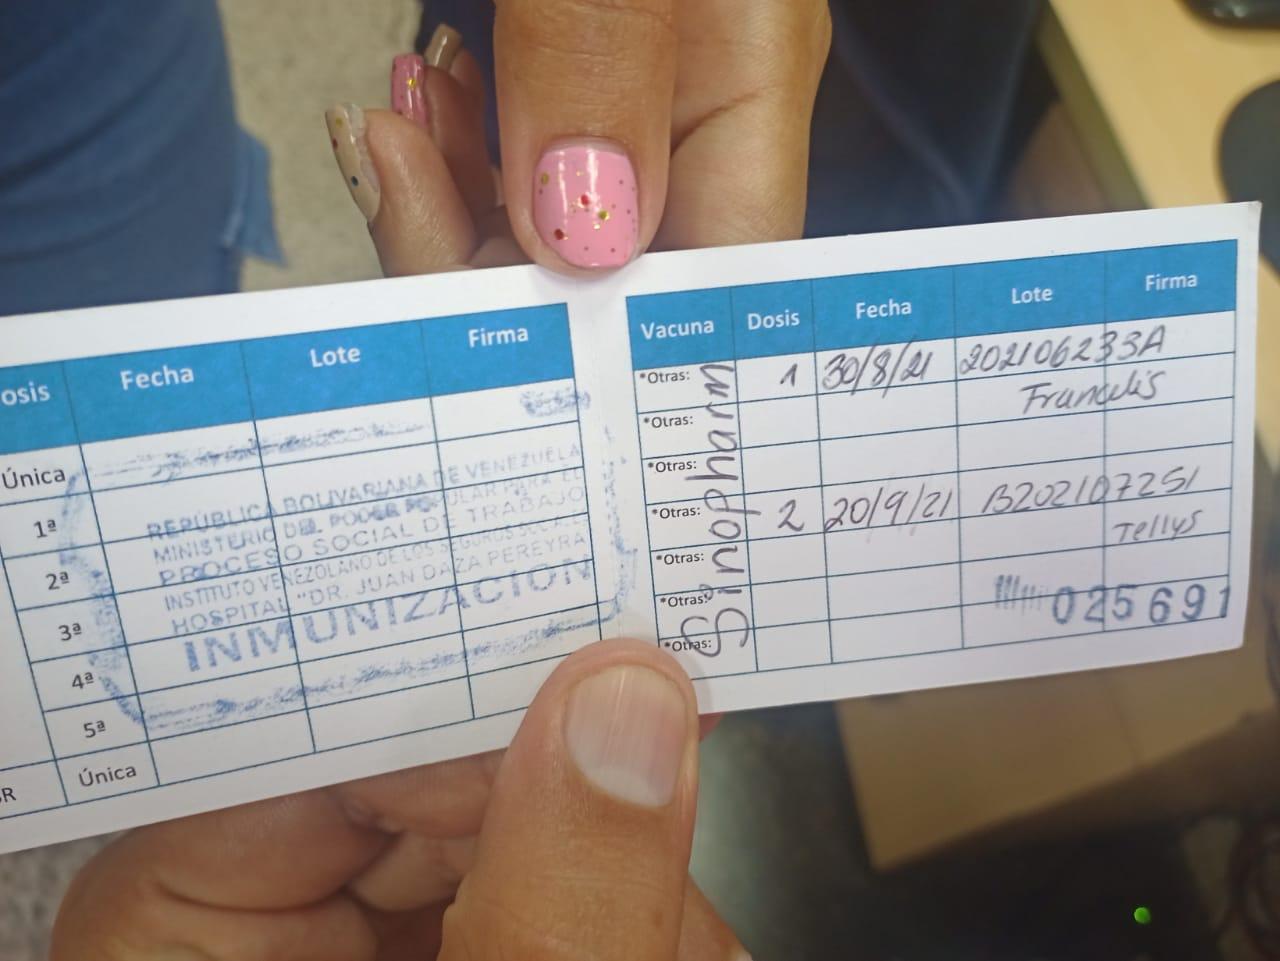 osis Fecha Lote Firma
Única
1ª
2ª
3ª
4ª
5ª
R Única
REPÚBLICA BOLIVARIANA DE VENEZUELA
MINISTERIO DEL PODER POPULAR PARA EL
PROCESO SOCIAL DE TRABAJO
INSTITUTO VENEZOLANO DE LOS SEGUROS SOCIALES
HOSPITAL "DR. JUAN DAZA PEREYRA"
INMUNIZACION
Vacuna Dosis Fecha Lote Firma
*Otras: 1 30/8/21 202106233A
*Otras: Francelis
*Otras:
*Otras: 2 20/9/21 B202107251
*Otras: Tellys
*Otras: 025691
*Otras:
Sinopharm